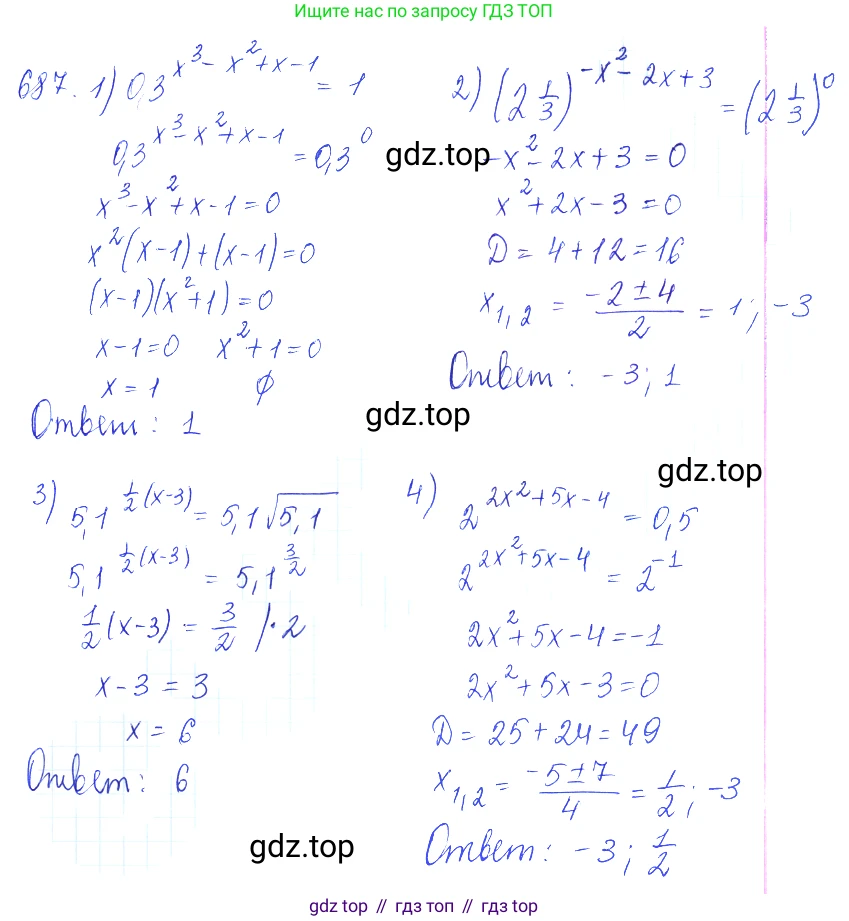 Ищите нас по запросу ГДЗ ТОП
687. 1) 0,3^(x³-x²+x-1) = 1
0,3^(x³-x²+x-1) = 0,3⁰
x³-x²+x-1=0
x²(x-1)+(x-1)=0
(x-1)(x²+1)=0
x-1=0 x²+1=0
x=1 ∅
Ответ: 1
2) (2 1/3)^(-x²-2x+3) = (2 1/3)⁰
gdz.top
-x²-2x+3=0
x²+2x-3=0
Д=4+12=16
x₁,₂ = (-2±4)/2 = 1; -3
Ответ: -3; 1
gdz.top
3) 5,1^(1/2(x-3)) = 5,1√5,1
5,1^(1/2(x-3)) = 5,1^(3/2)
1/2(x-3) = 3/2 |·2
x-3=3
x=6
Ответ: 6
gdz.top
4) 2^(2x²+5x-4) = 0,5
2^(2x²+5x-4) = 2⁻¹
2x²+5x-4=-1
2x²+5x-3=0
Д=25+24=49
x₁,₂ = (-5±7)/4 = 1/2; -3
Ответ: -3; 1/2
gdz.top
гдз топ // гдз топ // гдз топ